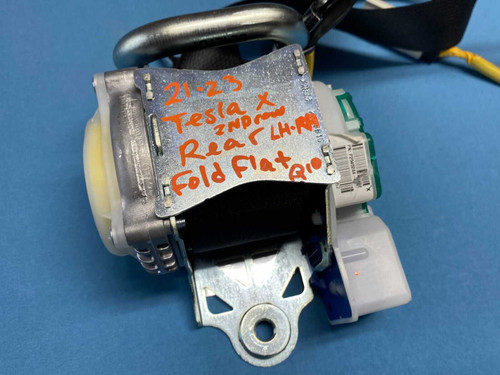 21-23
Tesla X
2ND row
Rear LH-RH
Fold Flat Q10